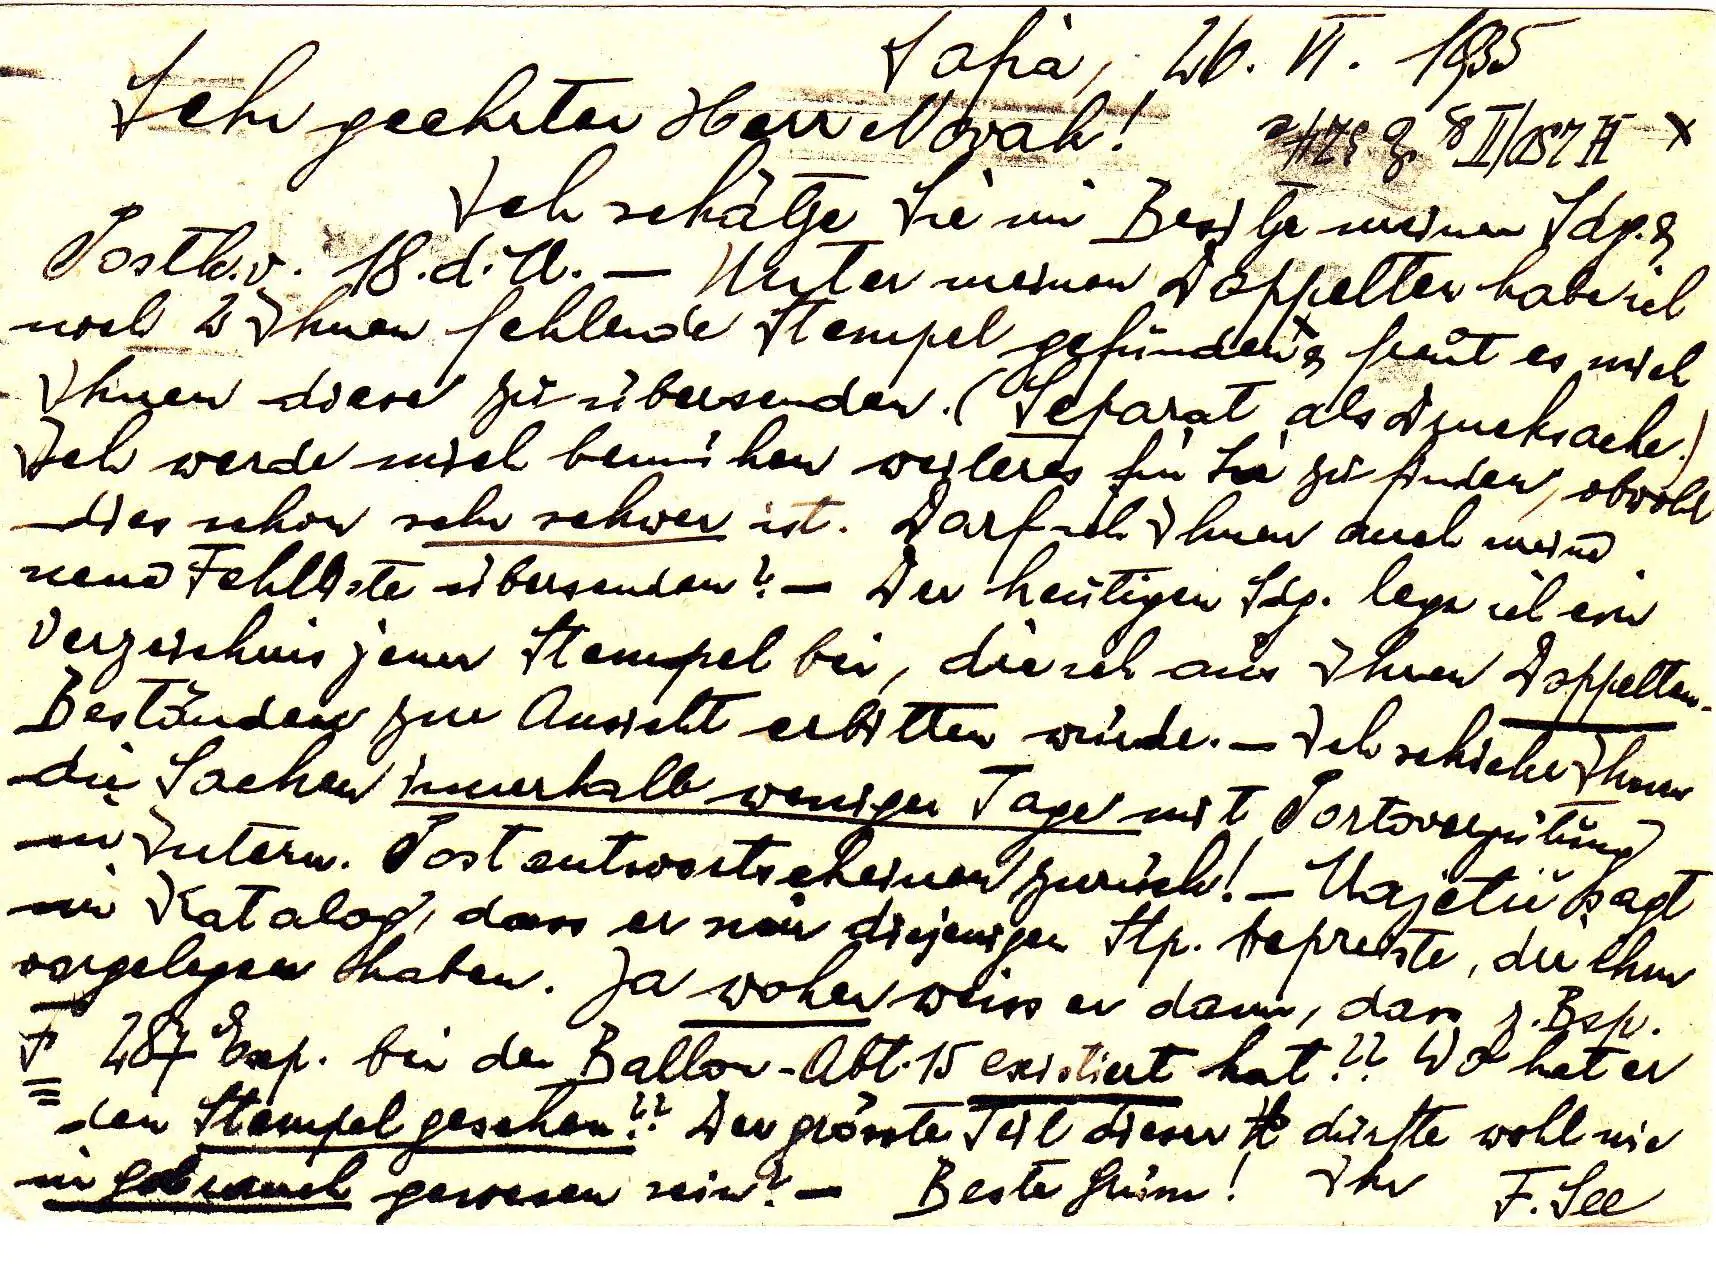 Sofia, 26. VI. 1935
Sehr geehrter Herr Novak!
Ich schätze Sie im Besitze meiner Sdg. &
Postk. v. 18. d. M. — Unter meinen Doppelten habe ich
noch 2 Ihnen fehlende Stempel gefunden x & freut es mich
Ihnen diese zu übersenden. (Separat als Drucksache.)
Ich werde mich bemühen weiteres für Sie zu finden, obwohl
dies schon sehr schwer ist. Darf ich Ihnen auch meine
neue Fehlliste übersenden? — Der heutigen Sdg. lege ich ein
Verzeichnis jener Stempel bei, die ich aus Ihren Doppelten-
Beständen zur Ansicht erbitten würde. — Ich schicke Ihnen
die Sachen innerhalb weniger Tage mit Portovergütung
in Intern. Postantwortscheinen zurück! — sagt
im Katalog, dass er nur diejenigen Stp. bepreiste, die ihm
vorgelegen haben. Ja woher weiss er dann, dass z. Bsp.
F 287 bei der Ballon-Abt. 15 existiert hat?? Wo hat er
den Stempel gesehen?? Der grösste Teil dieser St dürfte wohl nie
in gebrauch gewesen sein? — Beste Grüsse! Ihr F. See